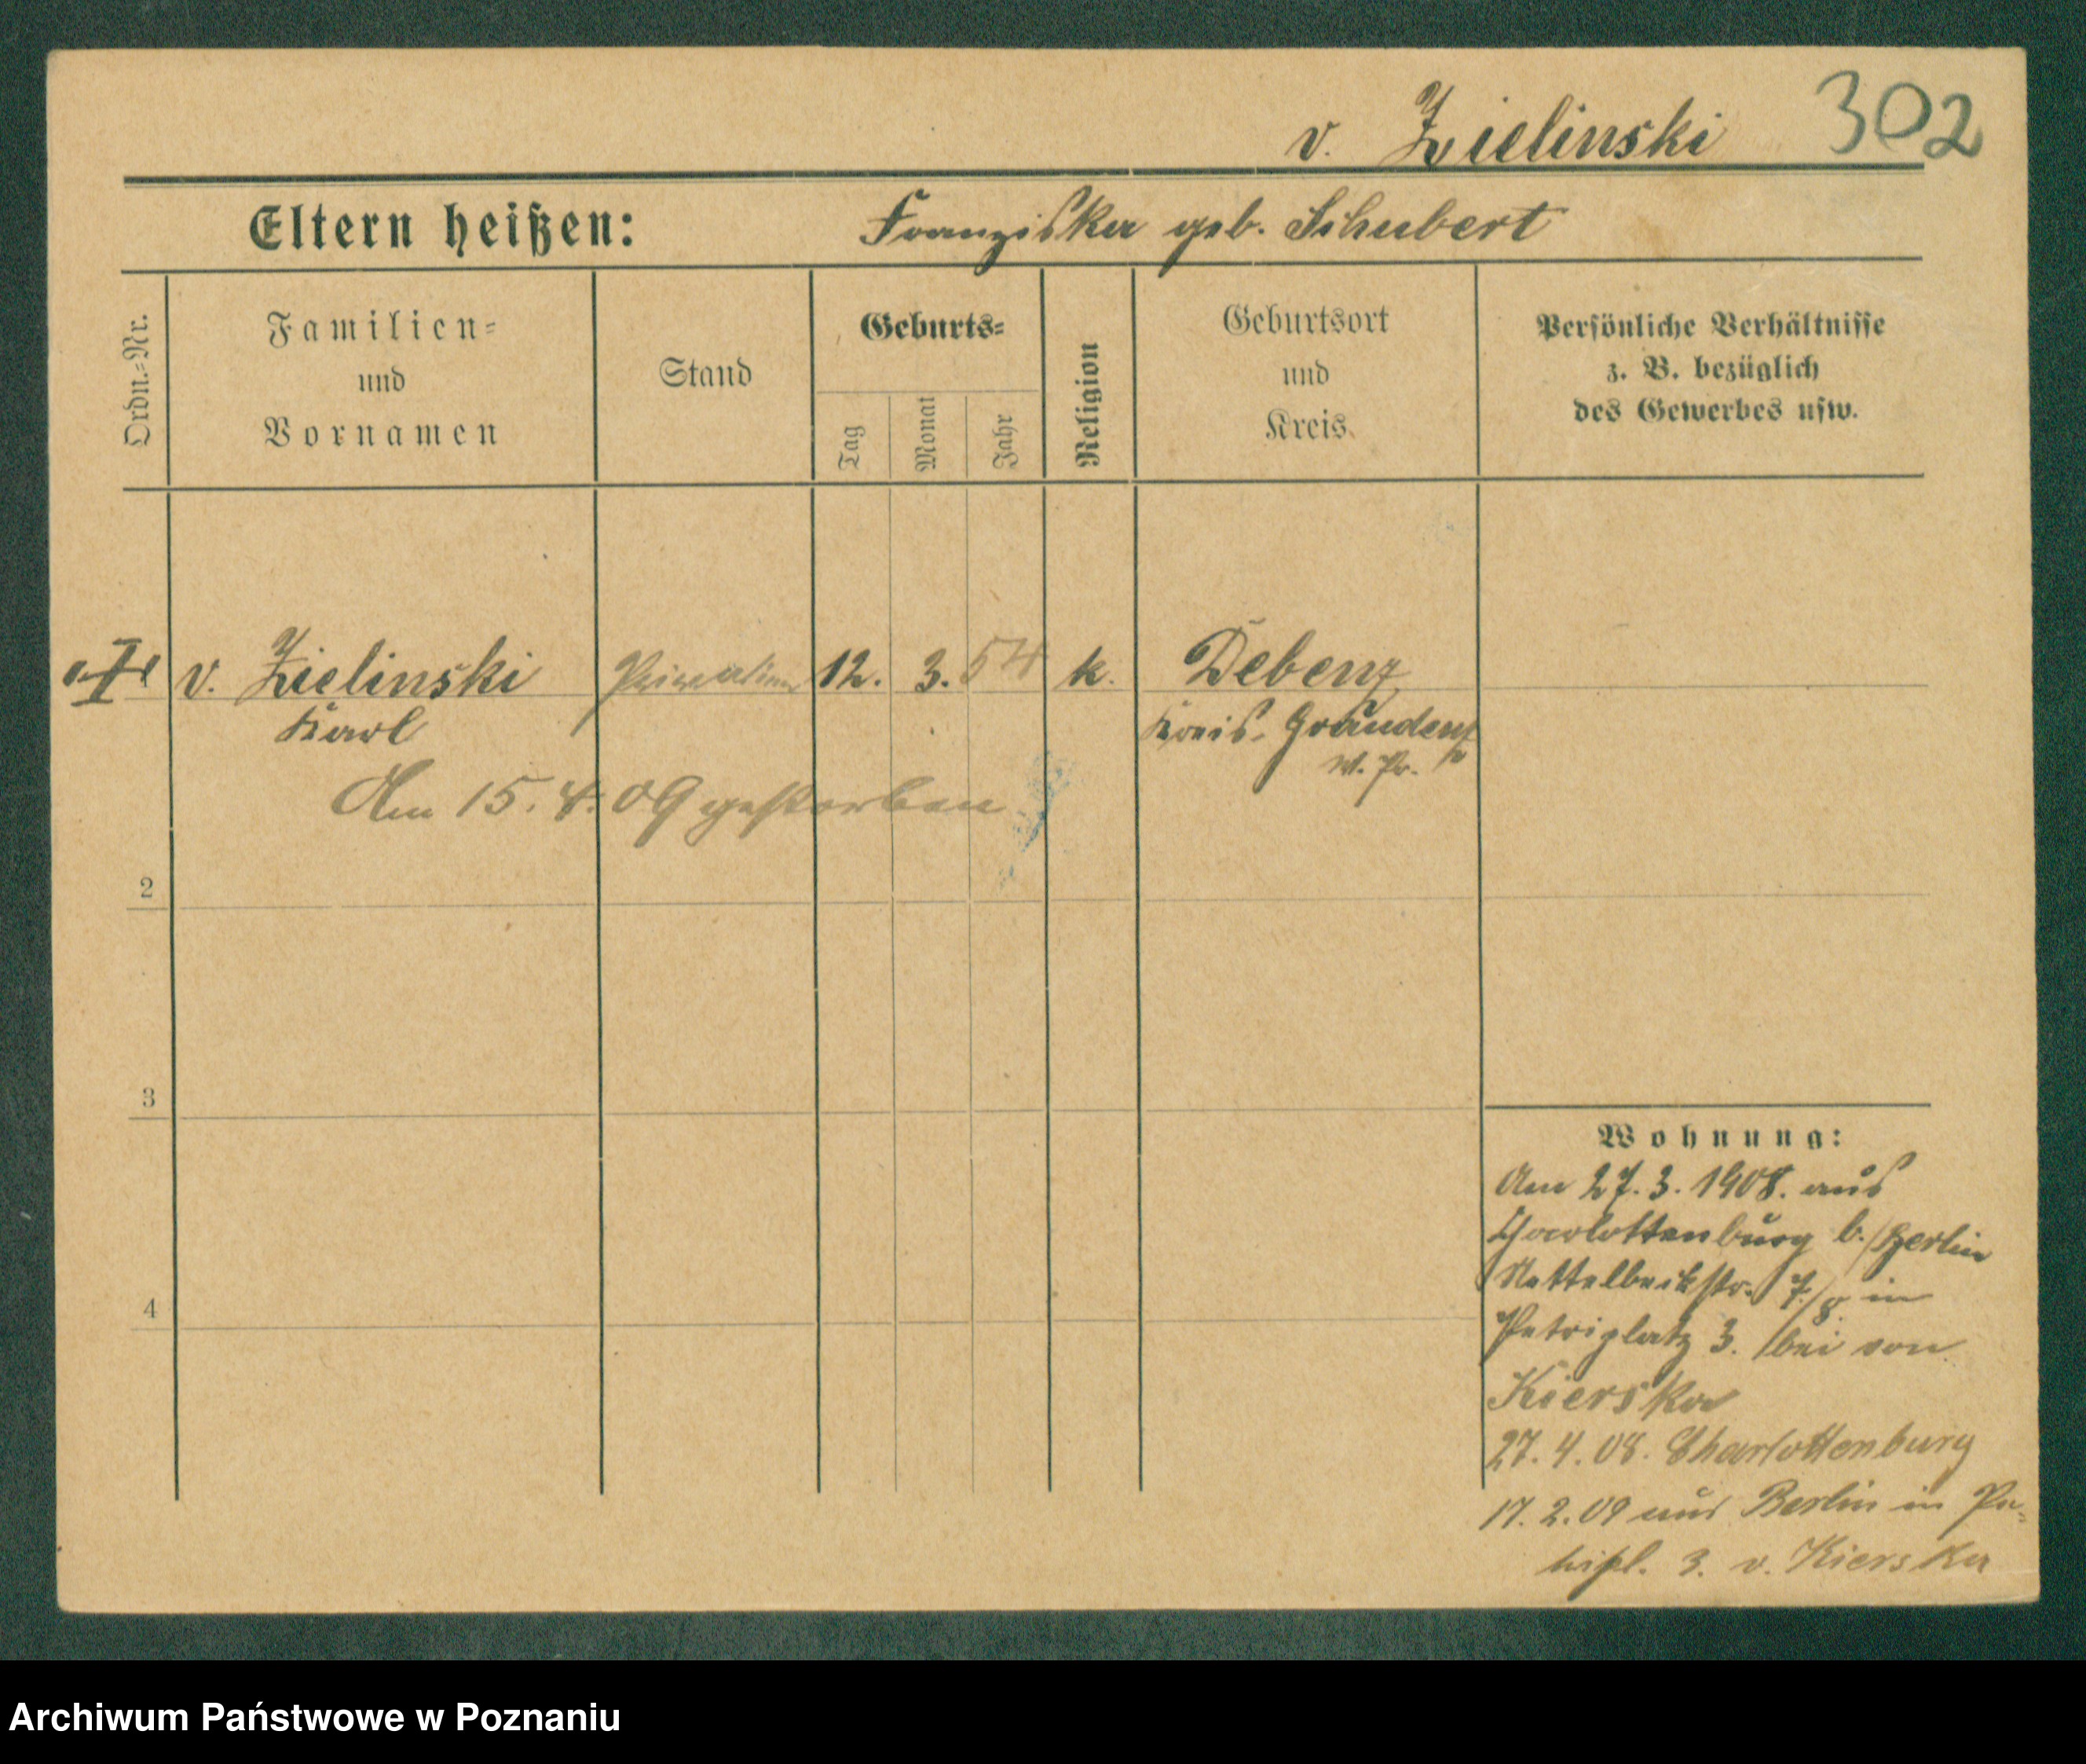 v. Zielinski 302
Eltern heißen: Franziska geb. Schubert
Ordn.=Nr.
Familien=
und
Vornamen
Stand
Geburts=
Tag
Monat
Jahr
Religion
Geburtsort
und
Kreis.
Persönliche Verhältnisse
z. B. bezüglich
des Gewerbes usw.
v. Zielinski 12. 3. 54 k. Debenz
Karl Kreis. Graudenz
W. Pr.
Am 15. 4. 09 gestorben
2
3
4
Wohnung:
Am 27. 3. 1908. aus
Charlottenburg b./Berlin
Nettelbeckstr. 7/8 in
Petriplatz 3. bei von
Kierska
27. 4. 08. Charlottenburg
17. 2. 09 aus Berlin in Pe=
3. v. Kierska
Archiwum Państwowe w Poznaniu